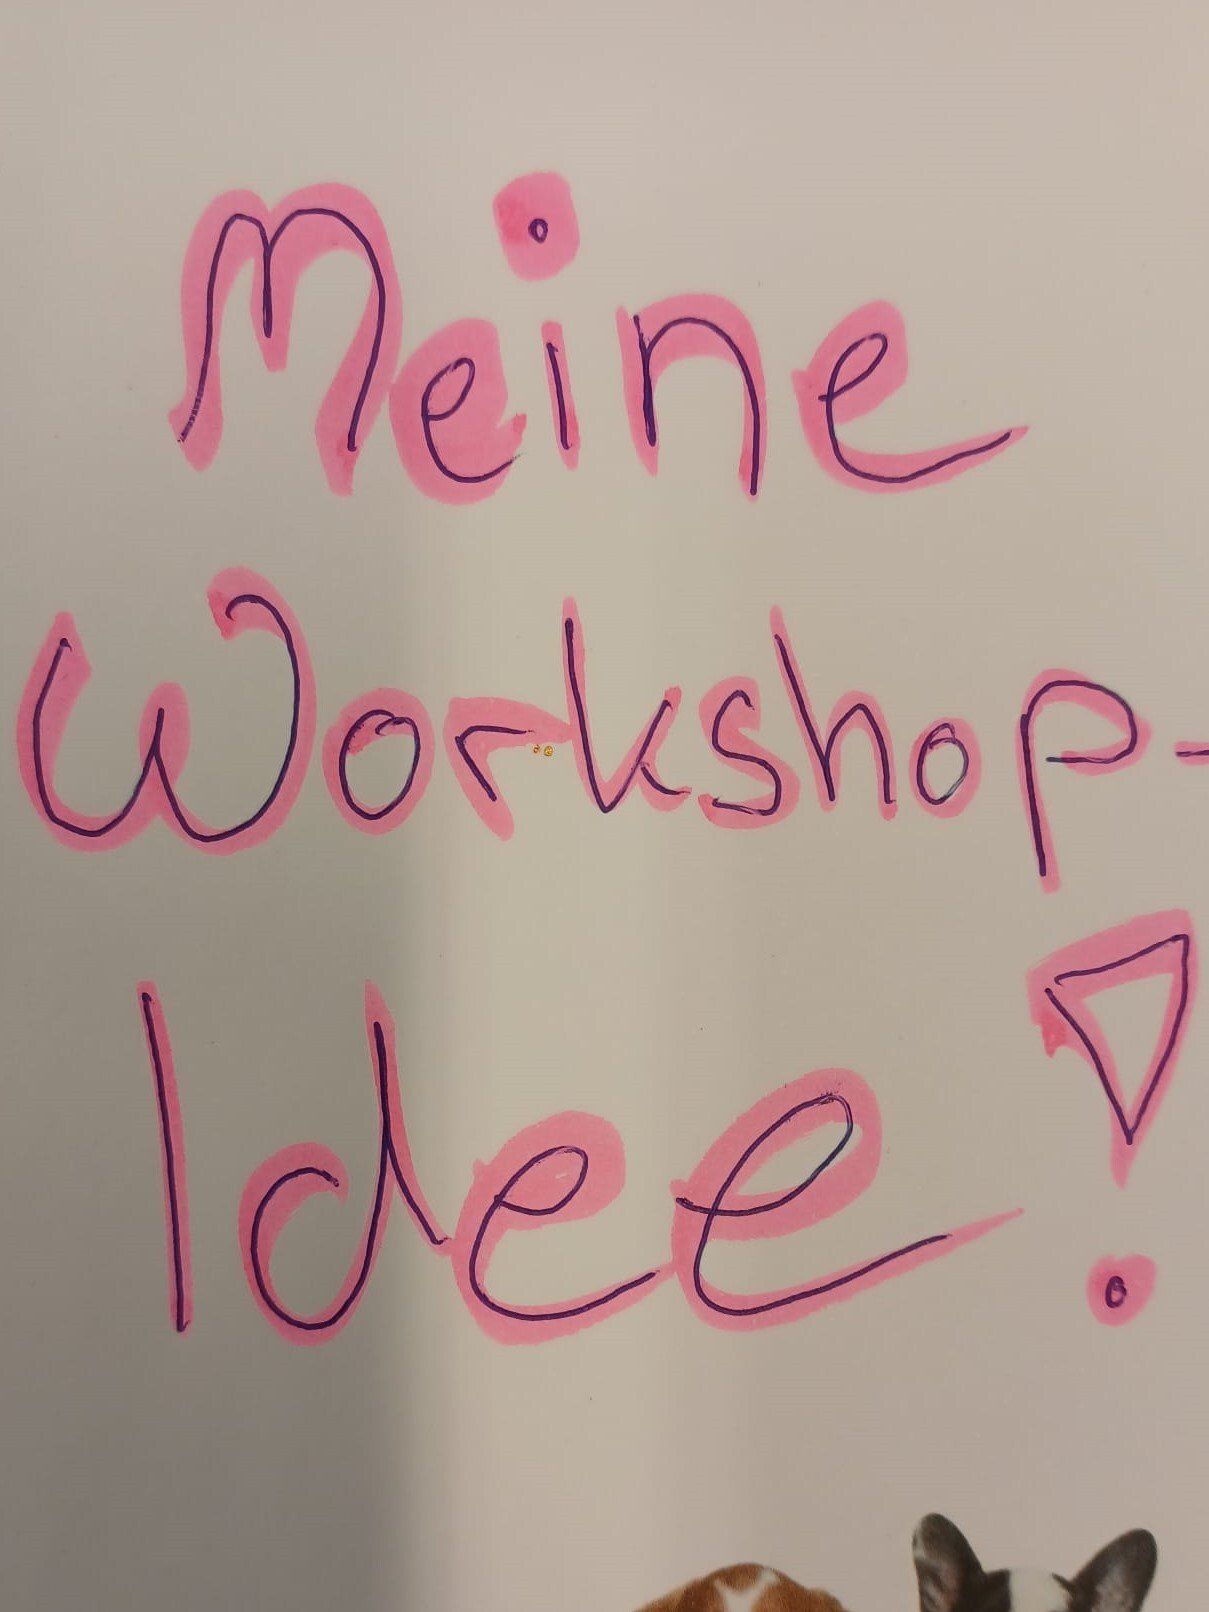 Meine
Workshop-
Idee!